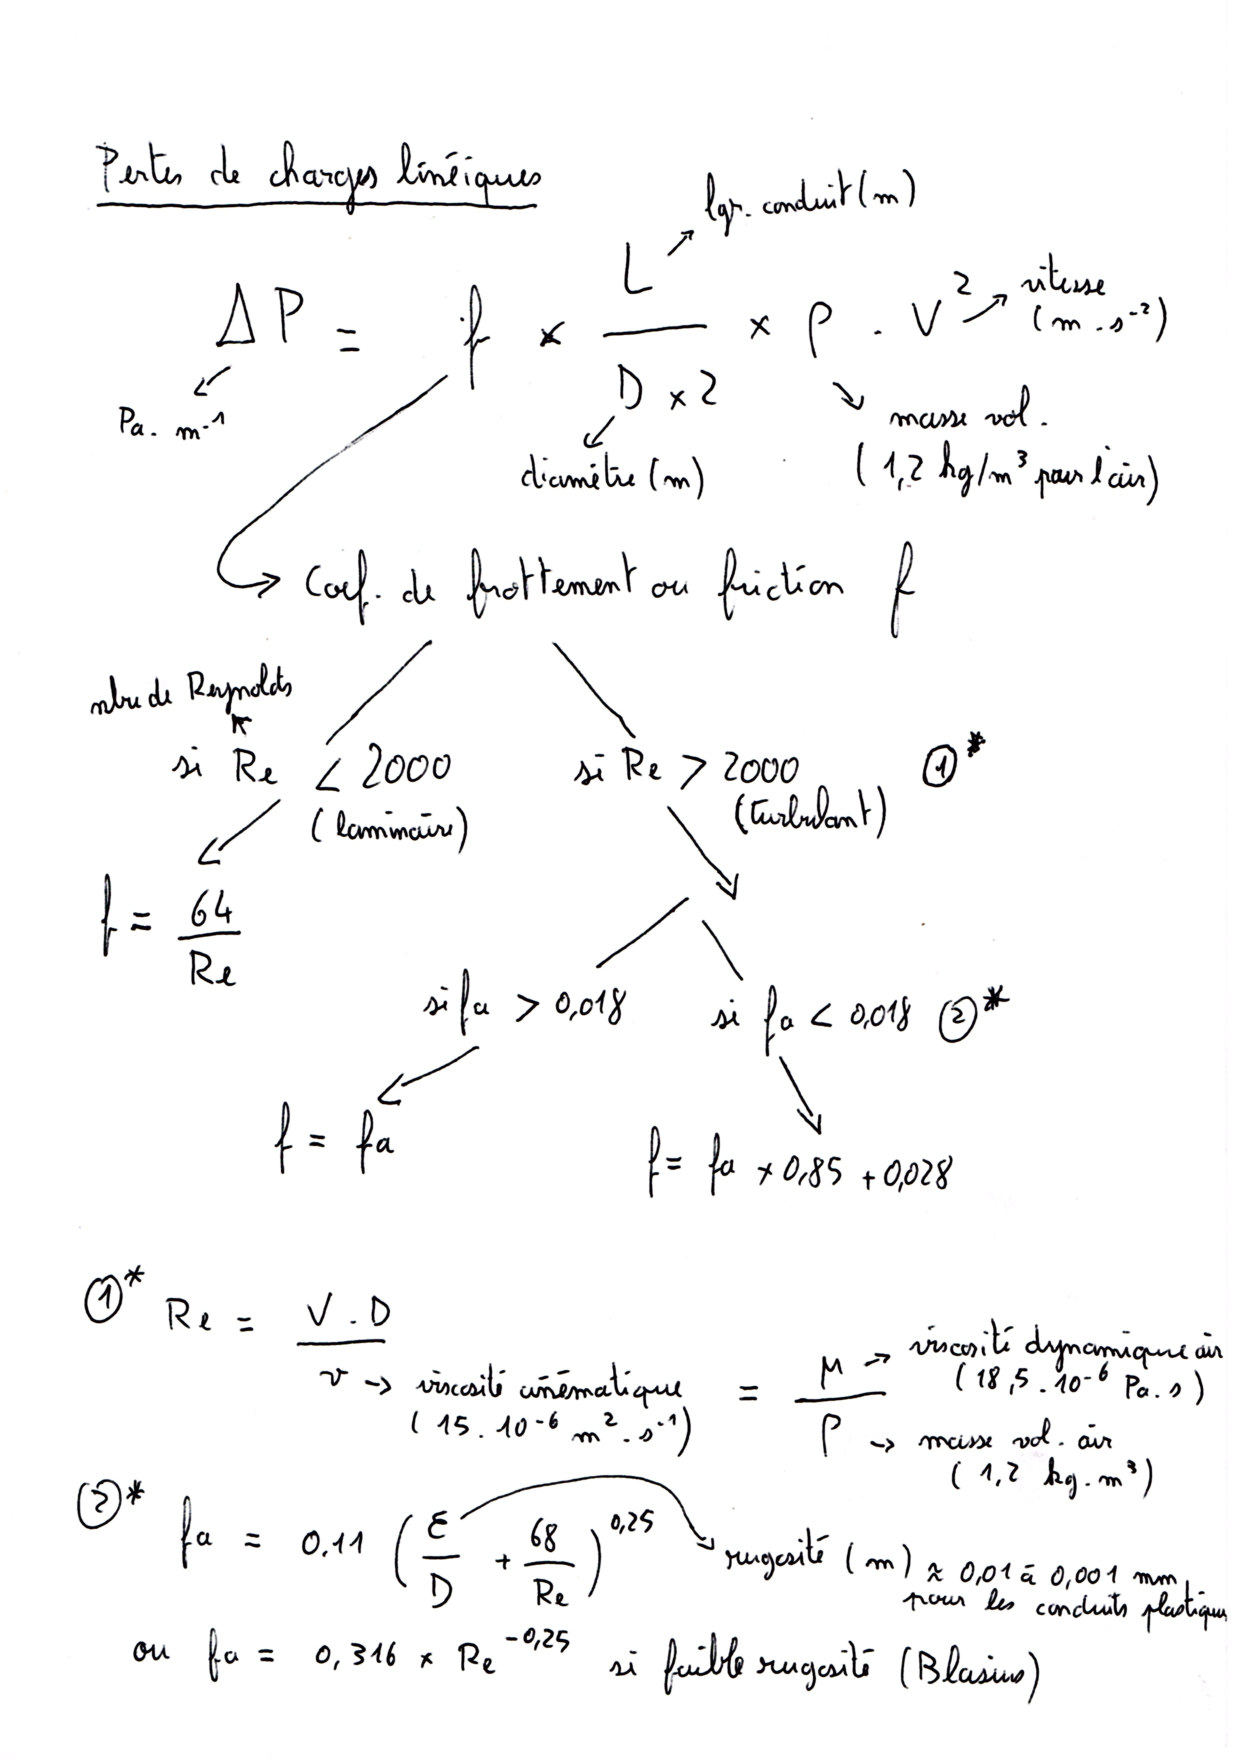 Pertes de charges linéiques
lgr. conduit (m)
ΔP = f × L / (D × 2) × ρ . V²
vitesse
(m . s⁻²)
Pa. m⁻¹
diamètre (m)
masse vol.
(1,2 kg/m³ pour l'air)
Coef. de frottement ou friction f
nbre de Reynolds
si Re < 2000
(laminaire)
si Re > 2000 ①*
(turbulant)
f = 64 / Re
si fa > 0,018
si fa < 0,018 ②*
f = fa
f = fa × 0,85 + 0,028
①* Re = V . D / ν
ν → viscosité cinématique
(15 . 10⁻⁶ m² . s⁻¹)
= μ / ρ
μ → viscosité dynamique air
(18,5 . 10⁻⁶ Pa. s)
ρ → masse vol. air
(1,2 kg . m³)
②* fa = 0.11 (ε/D + 68/Re)^0,25
rugosité (m) ≈ 0,01 à 0,001 mm
pour les conduits plastiques
ou fa = 0,316 × Re^-0,25 si faible rugosité (Blasius)